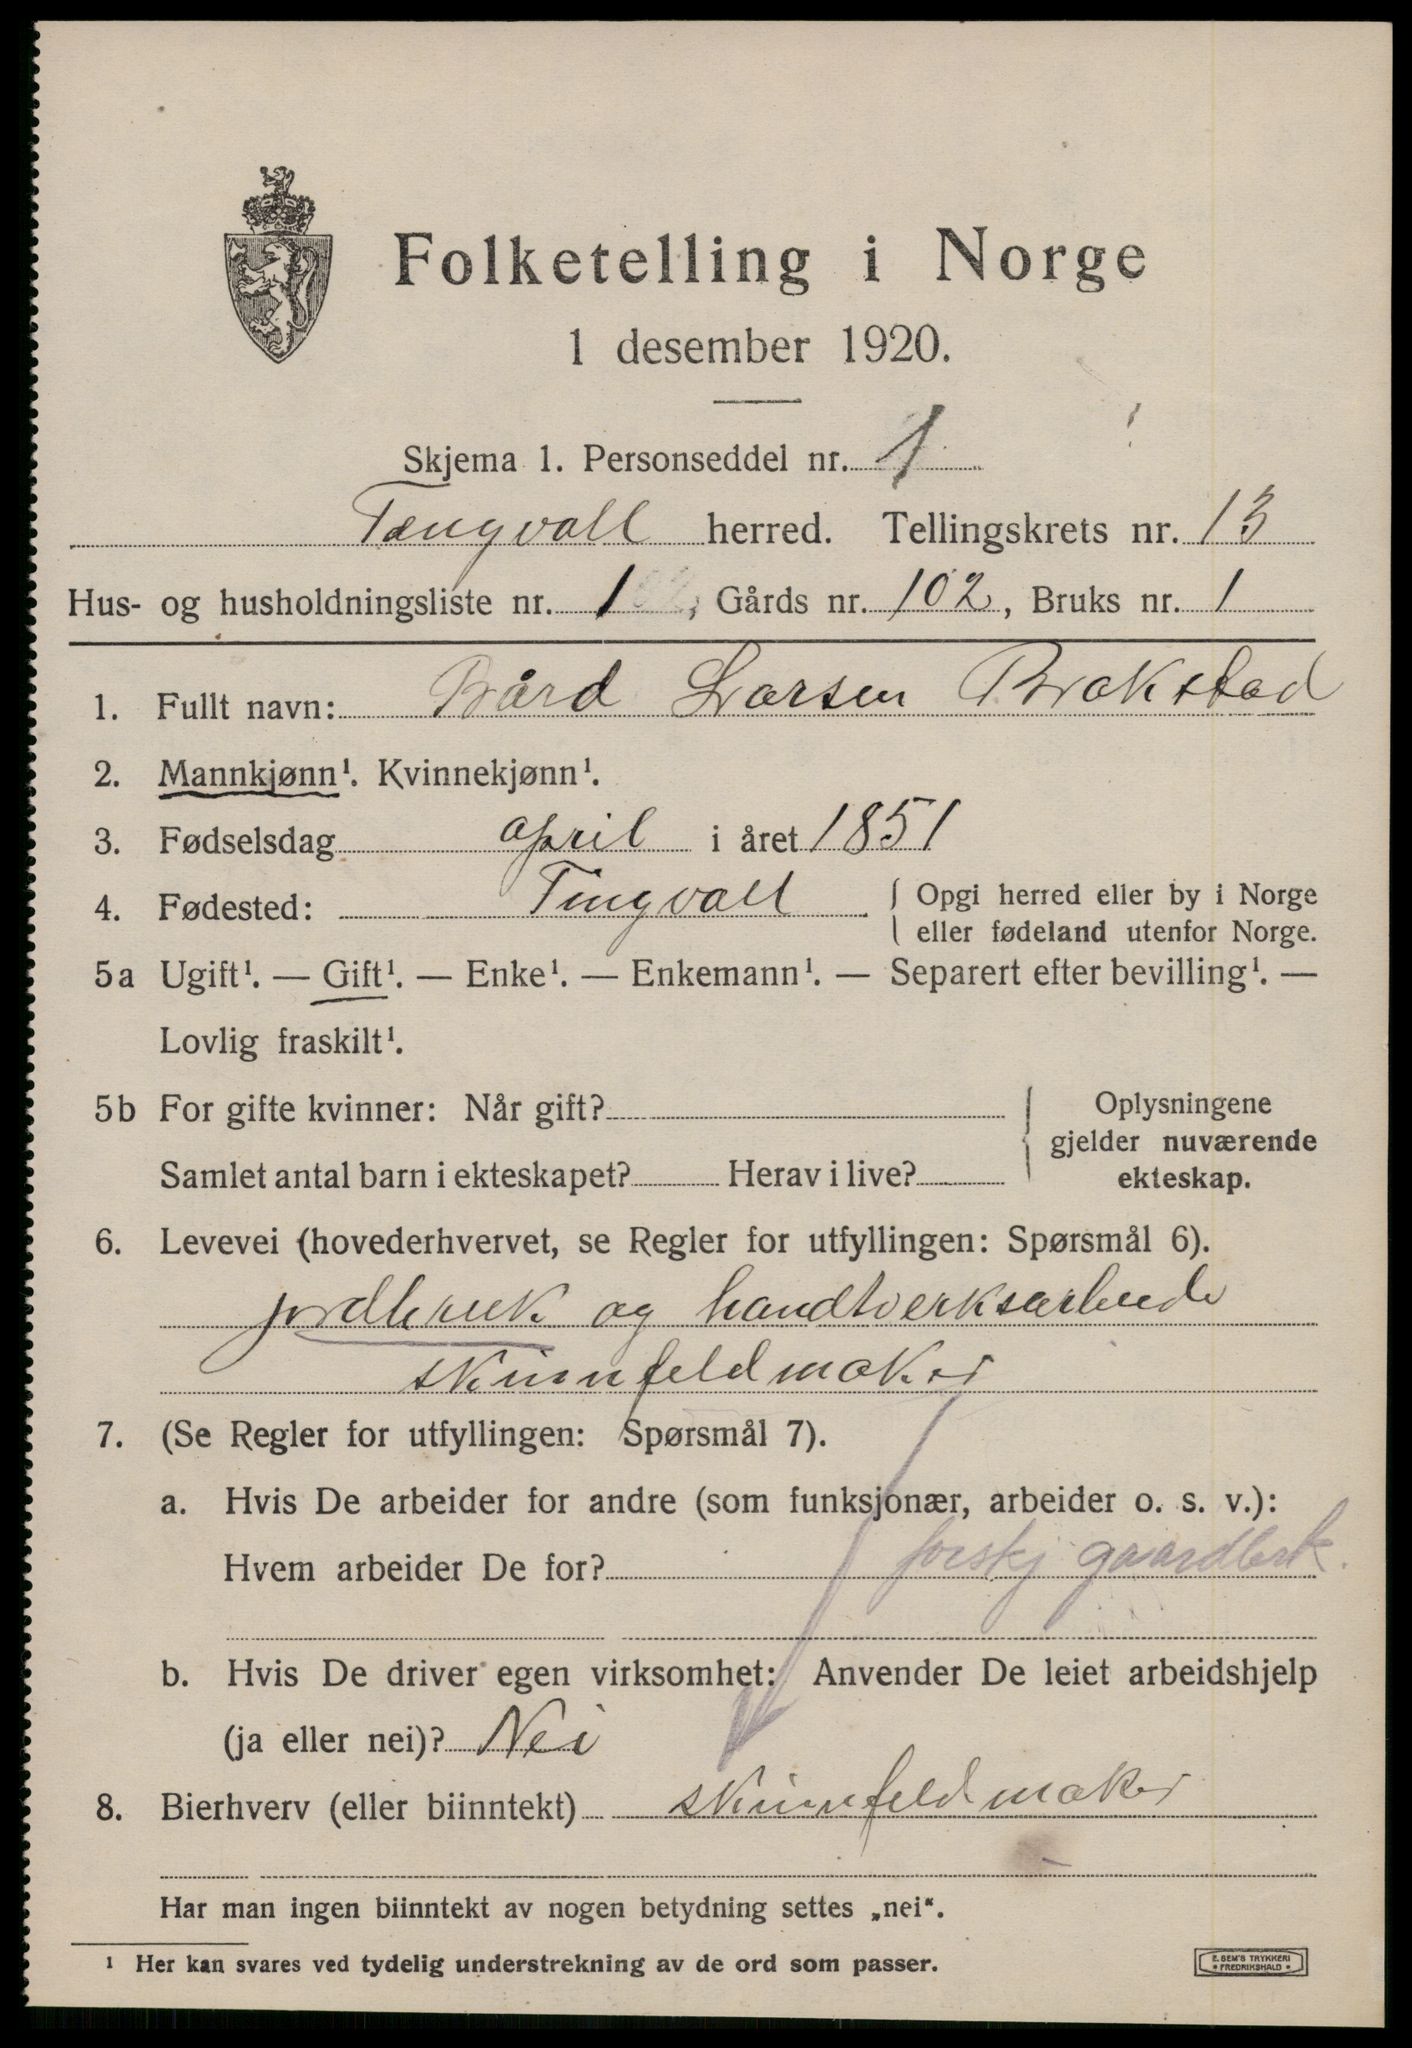 Folketelling i Norge
1 desember 1920.
Skjema 1. Personseddel nr. 1
Tingvoll herred. Tellingskrets nr. 13
Hus- og husholdningsliste nr. 1, Gårds nr. 102, Bruks nr. 1
1. Fullt navn: Bård Larsen Brakstad
2. Mannkjønn¹. Kvinnekjønn¹.
3. Fødselsdag april i året 1851
4. Fødested: Tingvoll { Opgi herred eller by i Norge
eller fødeland utenfor Norge.
5a Ugift¹. — Gift¹. — Enke¹. — Enkemann¹. — Separert efter bevilling¹. —
Lovlig fraskilt¹.
5b For gifte kvinner: Når gift? { Oplysningene
gjelder nuværende
Samlet antal barn i ekteskapet? Herav i live? ekteskap.
6. Levevei (hovederhvervet, se Regler for utfyllingen: Spørsmål 6).
jordbruk og handtverksarbeide
skinnfeldmaker
7. (Se Regler for utfyllingen: Spørsmål 7).
a. Hvis De arbeider for andre (som funksjonær, arbeider o. s. v.):
Hvem arbeider De for? forskj gaardbrk.
b. Hvis De driver egen virksomhet: Anvender De leiet arbeidshjelp
(ja eller nei)? Nei
8. Bierhverv (eller biinntekt) skinnfeldmaker
Har man ingen biinntekt av nogen betydning settes „nei“.
¹ Her kan svares ved tydelig understrekning av de ord som passer.
E. SEM'S TRYKKERI
FREDRIKSHALD